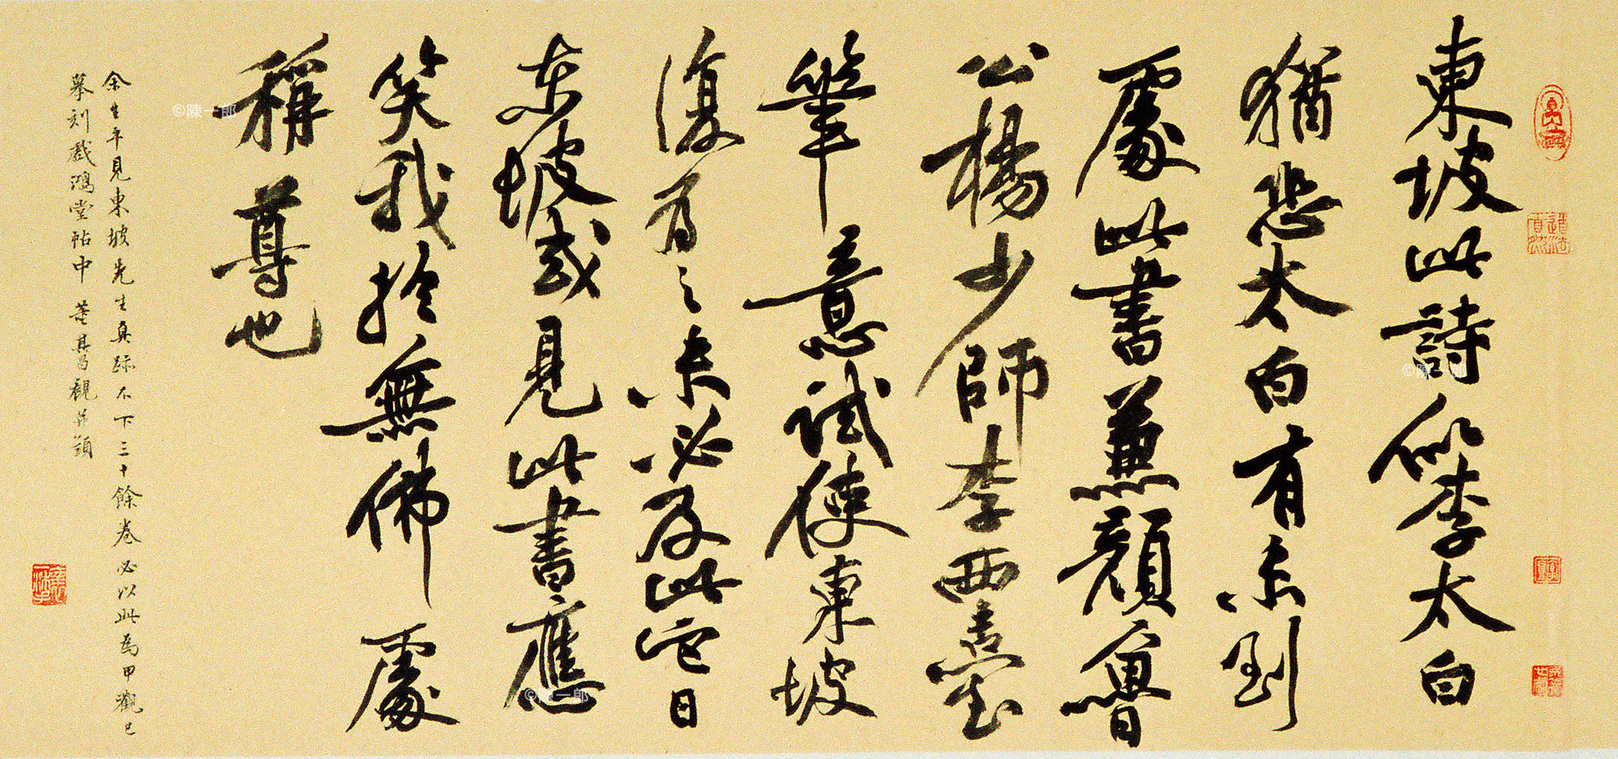 東坡此詩似李太白
猶恐太白有未到
處此書兼顏魯
公楊少師李西臺
筆意試使東坡
復為之未必及此它日
東坡或見此書應
笑我於無佛處
稱尊也
余生平見東坡先生真跡不下三十餘卷必以此為甲觀已
摹刻戲鴻堂帖中 董其昌觀并題
©陳一郎
©陳一郎
©陳一郎